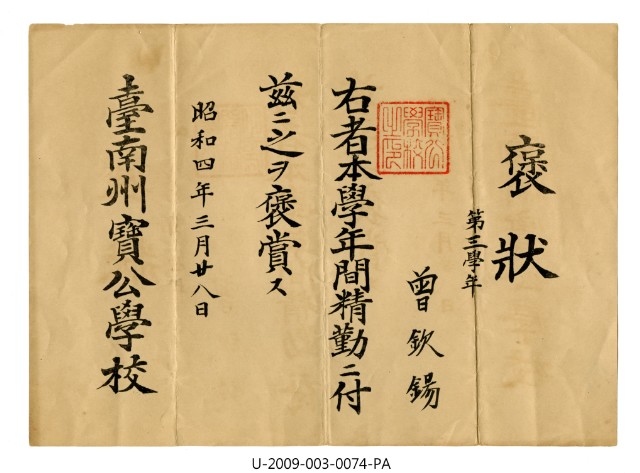 褒狀
第三學年
曾欽錫
右者本學年間精勤ニ付
茲ニ之ヲ褒賞ス
昭和四年三月廿八日
臺南州寶公學校
寶公
學校
之印
U-2009-003-0074-PA